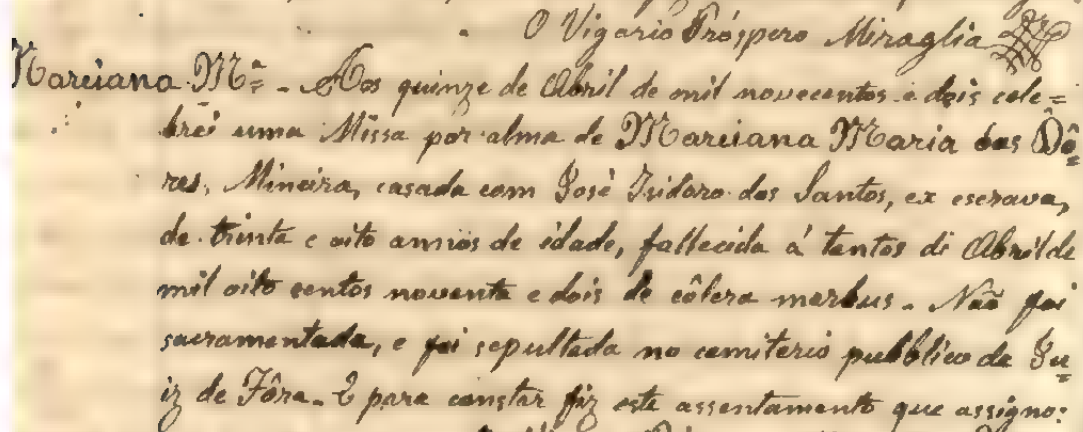 O Vigario Próspero Miraglia
Marciana Mª= - Aos quinze de Abril de mil novecentos e dois cele=
brei uma Missa por alma de Marciana Maria das Dô=
res, Mineira, casada com José Isidoro dos Santos, ex escrava,
de trinta e oito annos de idade, fallecida á tantos di Abril de
mil oito centos noventa e dois de côlera morbus. Não foi
sacramentada, e foi sepultada no cemiterio pubblico de Ju=
iz de Fôra. E para constar fiz este assentamento que assigno: